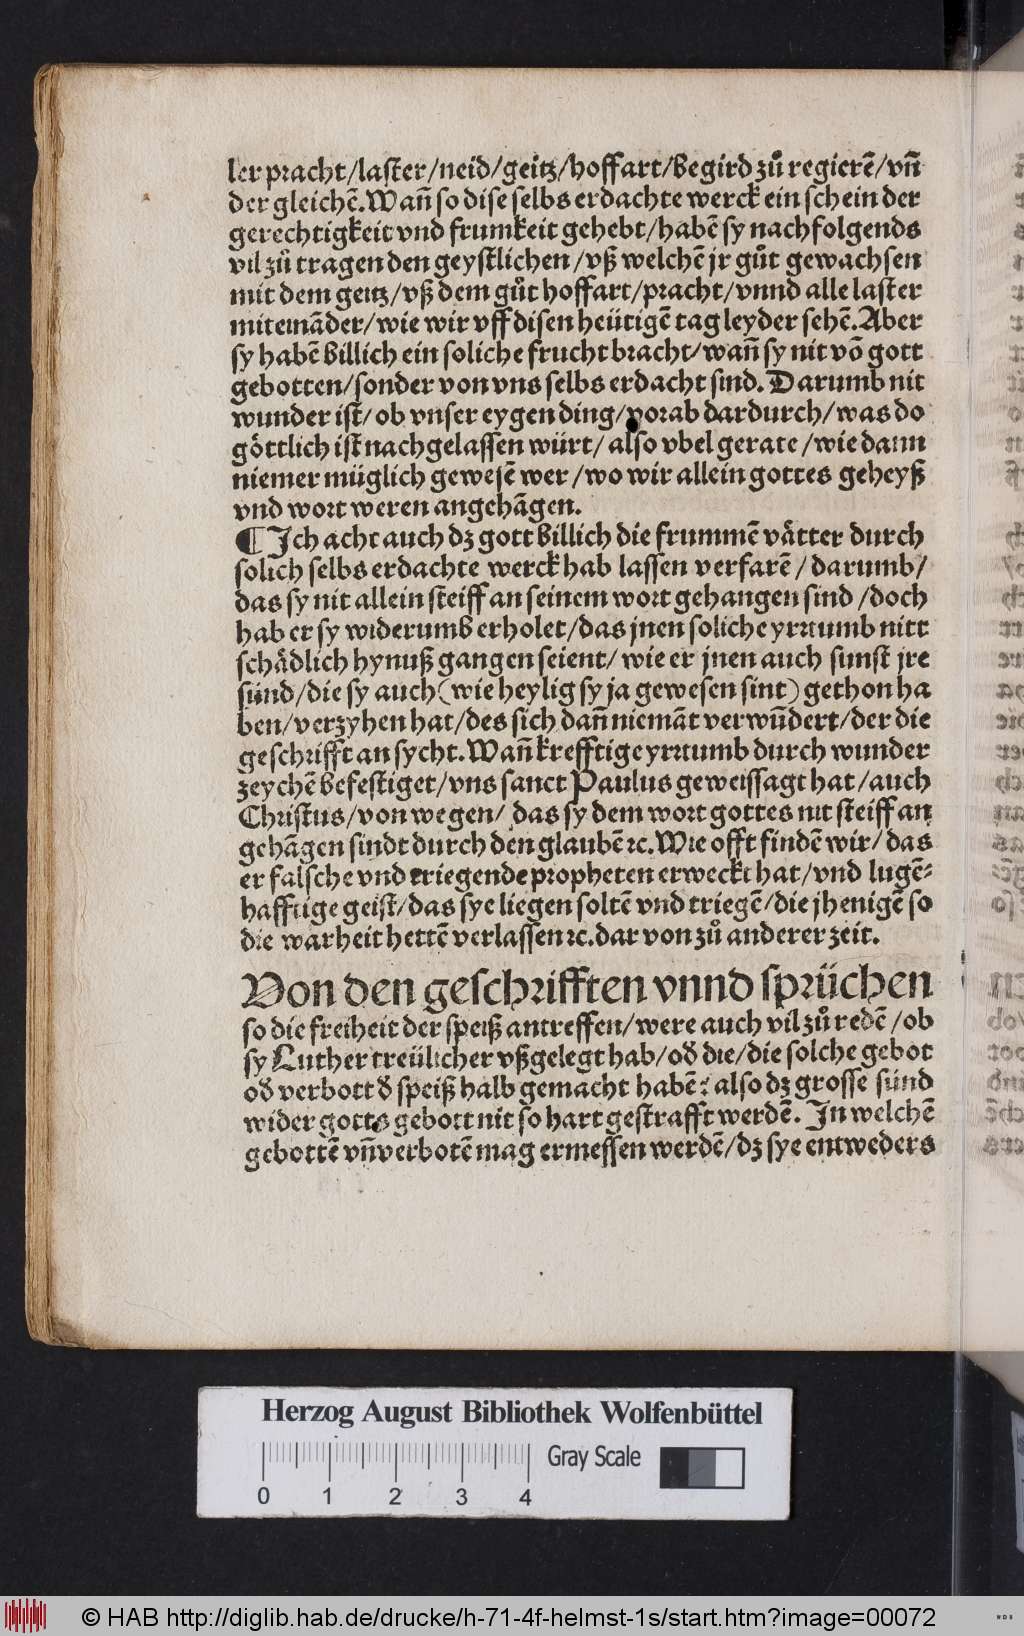 ler pracht/laster/neid/geitz/hoffart/begird zuͦ regierē/vñ
der gleichē. Wañ so dise selbs erdachte werck ein schein der
gerechtigkeit vnd frumkeit gehebt/habē sy nachfolgends
vil zuͦ tragen den geystlichen/vß welchē jr guͦt gewachsen
mit dem geitz/vß dem guͦt hoffart/pracht/vnnd alle laster
miteinãder/wie wir vff disen heütigē tag leyder sehē. Aber
sy habē billich ein soliche frucht bracht/wañ sy nit vō gott
gebotten/sonder von vns selbs erdacht sind. Darumb nit
wunder ist/ ob vnser eygen ding/vorab dardurch/was do
goͤttlich ist nachgelassen würt/ also vbel gerate/wie dann
niemer müglich gewesē wer/wo wir allein gottes geheyß
vnd wort weren angehãgen.
¶ Ich acht auch dz gott billich die frummē vaͤtter durch
solich selbs erdachte werck hab lassen verfarē/ darumb/
das sy nit allein steiff an seinem wort gehangen sind/doch
hab er sy widerumb erholet/das jnen soliche yrrtumb nitt
schaͤdlich hynuß gangen seient/ wie er jnen auch sunst jre
sünd/die sy auch (wie heylig sy ja gewesen sint) gethon ha
ben/verzyhen hat/des sich dañ niemãt verwūdert/der die
geschrifft an sycht. Wañ krefftige yrrtumb durch wunder
zeychē befestiget/vns sanct Paulus geweissagt hat/auch
Christus/von wegen/ das sy dem wort gottes nit steiff an
gehãgen sindt durch den glaubē ꝛc. Wie offt findē wir/das
er falsche vnd triegende propheten erweckt hat/vnd lugē⸗
hafftige geist/das sye liegen soltē vnd triegē/die jhenigē so
die warheit hettē verlassen ꝛc. dar von zuͦ anderer zeit.
Von den geschrifften vnnd sprüchen
so die freiheit der speiß antreffen/were auch vil zuͦ redē/ob
sy Luther treülicher vßgelegt hab/oď die/die solche gebot
oď verbott ď speiß halb gemacht habē: also dz grosse sünd
wider gotts gebott nit so hart gestrafft werdē. In welchē
gebottē vñ verbotē mag ermessen werdē/dz sye entweders
Herzog August Bibliothek Wolfenbüttel
Gray Scale
0 1 2 3 4
© HAB http://diglib.hab.de/drucke/h-71-4f-helmst-1s/start.htm?image=00072